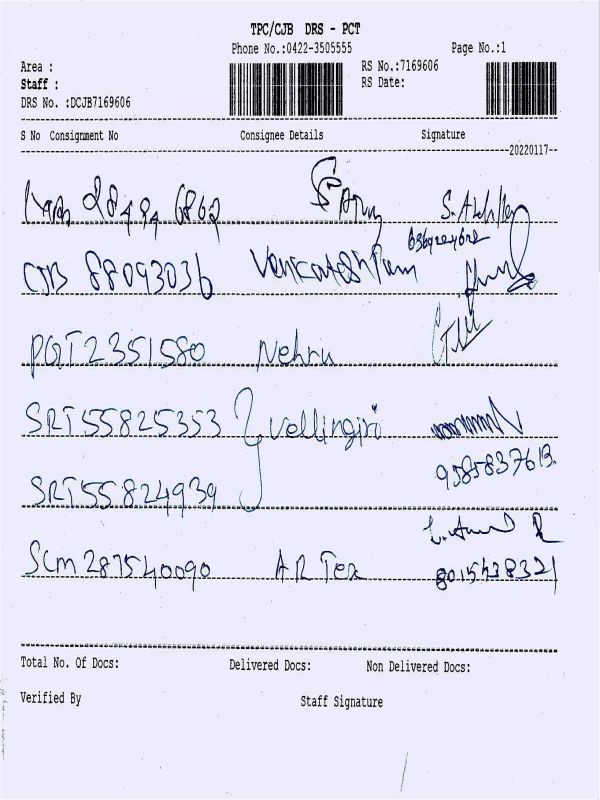 TPC/CJB DRS - PCT
Phone No.:0422-3505555 Page No.:1
Area : RS No.:7169606
Staff : RS Date:
DRS No. :DCJB7169606
S No Consignment No Consignee Details Signature
20220117
28494 6862
CJB 88093036 Venkatesh Ram
PGT 2351580 Nehru
SRT 55825353 vellingiri
9585837613.
SRT 55824939
SCM 287540090 AR Tex 8015438321
Total No. Of Docs: Delivered Docs: Non Delivered Docs:
Verified By Staff Signature